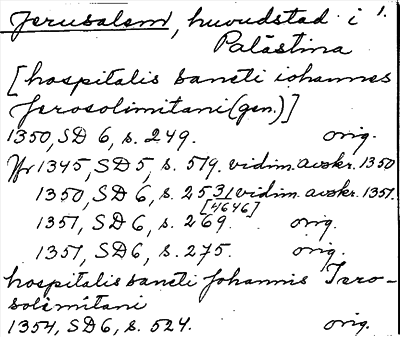 Jerusalem, huvudstad i 1.
Palästina
[hospitalis sancti iohannes
Jerosolimitani (gen.)]
1350, SD 6, s. 249. orig.
Yfr 1345, SD 5, s. 519. vidim. avskr. 1350
1350, SD 6, s. 253 vidim. avskr. 1351.
[4646]
1351, SD 6, s. 269. orig.
1351, SD 6, s. 275. orig.
hospitalis sancti Johannis Iero-
solimitani
1354, SD 6, s. 524. orig.